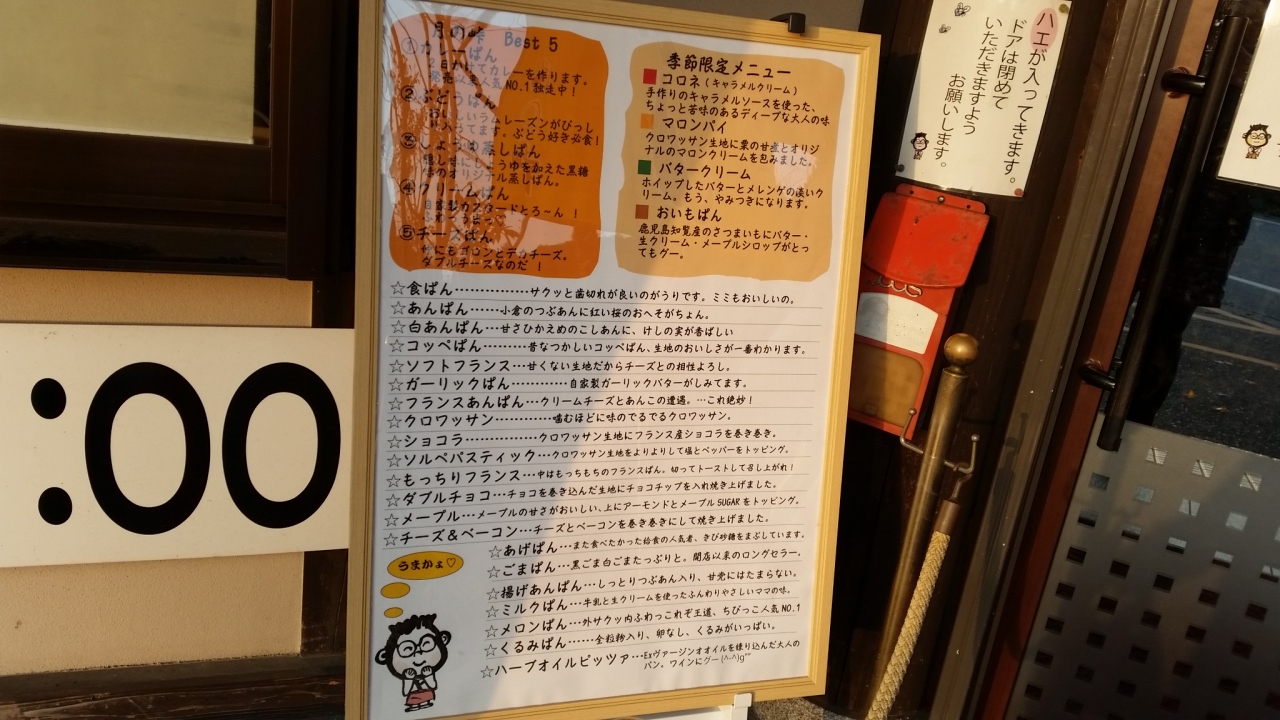 :00
月の峠 Best 5
①カレーぱん
2日かけてカレーを作ります。
発売以来人気NO.1独走中！
②ぶどうぱん
レーズンがびっしり
ってます。ぶどう好き必食！
③しょうゆ蒸しぱん
隠し味にしょうゆを加えた黒糖
味のオリジナル蒸しぱん。
④クリームぱん
自家製カスタードとろ〜ん！
⑤チーズぱん
ゴロンとデカチーズ。
ダブルチーズなのだ！
季節限定メニュー
コロネ（キャラメルクリーム）
手作りのキャラメルソースを使った、
ちょっと苦味のあるディープな大人の味
マロンパイ
クロワッサン生地に栗の甘煮とオリジ
ナルのマロンクリームを包みました。
バタークリーム
ホイップしたバターとメレンゲの淡いク
リーム。もう、やみつきになります。
おいもぱん
鹿児島知覧産のさつまいもにバター・
生クリーム・メープルシロップがとっ
てもグー。
☆食ぱん……………サクッと歯切れが良いのがうりです。ミミもおいしいの。
☆あんぱん……小倉のつぶあんに紅い桜のおへそがちょん。
☆白あんぱん…甘さひかえめのこしあんに、けしの実が香ばしい
☆コッペぱん………昔なつかしいコッペぱん、生地のおいしさが一番わかります。
☆ソフトフランス…甘くない生地だからチーズとの相性よろし。
☆ガーリックぱん…………自家製ガーリックバターがしみてます。
☆フランスあんぱん…クリームチーズとあんこの遭遇。…これ絶妙！
☆クロワッサン…………噛むほどに味のでるでるクロワッサン。
☆ショコラ………………クロワッサン生地にフランス産ショコラを巻き巻き。
☆ソルペパスティック…クロワッサン生地をよりよりして塩とペッパーをトッピング。
☆もっちりフランス…中はもっちもちのフランスぱん。切ってトーストして召し上がれ！
☆ダブルチョコ…チョコを巻き込んだ生地にチョコチップを入れ焼き上げました。
☆メープル…メープルの甘さがおいしい、上にアーモンドとメープルSUGARをトッピング。
☆チーズ＆ベーコン…チーズとベーコンを巻き巻きにして焼き上げました。
☆あげぱん…また食べたかった給食の人気者、きび砂糖をまぶしています。
☆ごまぱん…黒ごま白ごまたっぷりと。開店以来のロングセラー。
☆揚げあんぱん…しっとりつぶあん入り、甘党にはたまらない。
☆ミルクぱん…牛乳と生クリームを使ったふんわりやさしいママの味。
☆メロンぱん…外サクッ内ふわっこれぞ王道、ちびっこ人気NO.1
☆くるみぱん……全粒粉入り、卵なし、くるみがいっぱい。
☆ハーブオイルピッツァ…Exヴァージンオオイルを練り込んだ大人の
パン。ワインにグー(^-^)g""
うまかぁ♡
ハエが入ってきます。
ドアは閉めて
いただきますよう
お願いします。